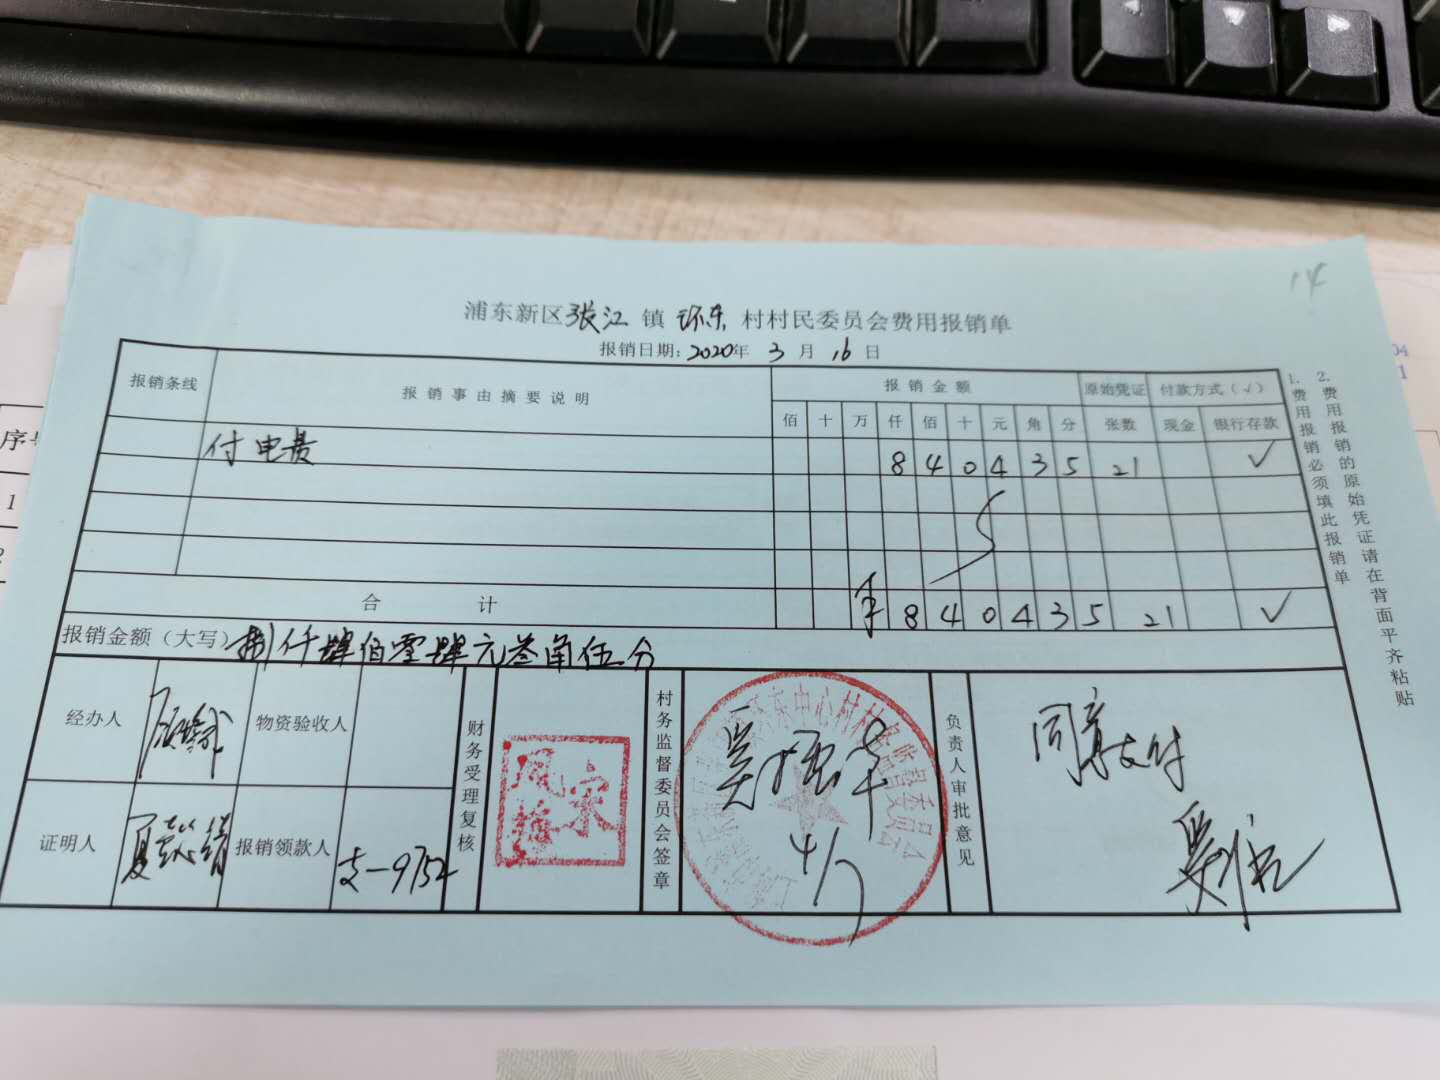 14
浦东新区张江镇环东村村民委员会费用报销单
报销日期:2020年3月16日
报销条线 报销事由摘要说明 报销金额 原始凭证 付款方式(√)
佰 十 万 仟 佰 十 元 角 分 张数 现金 银行存款
付电费 8 4 0 4 3 5 21 √
合计 ¥ 8 4 0 4 3 5 21 √
报销金额(大写) 捌仟肆佰零肆元叁角伍分
经办人 物资验收人
证明人 报销领款人 支-9752
财务受理复核
宋凤梅
村务监督委员会签章
4/7
负责人审批意见
同意支付
1.费用报销必须填此报销单
2.费用报销的原始凭证请在背面平齐粘贴
序号
1
2
04
1